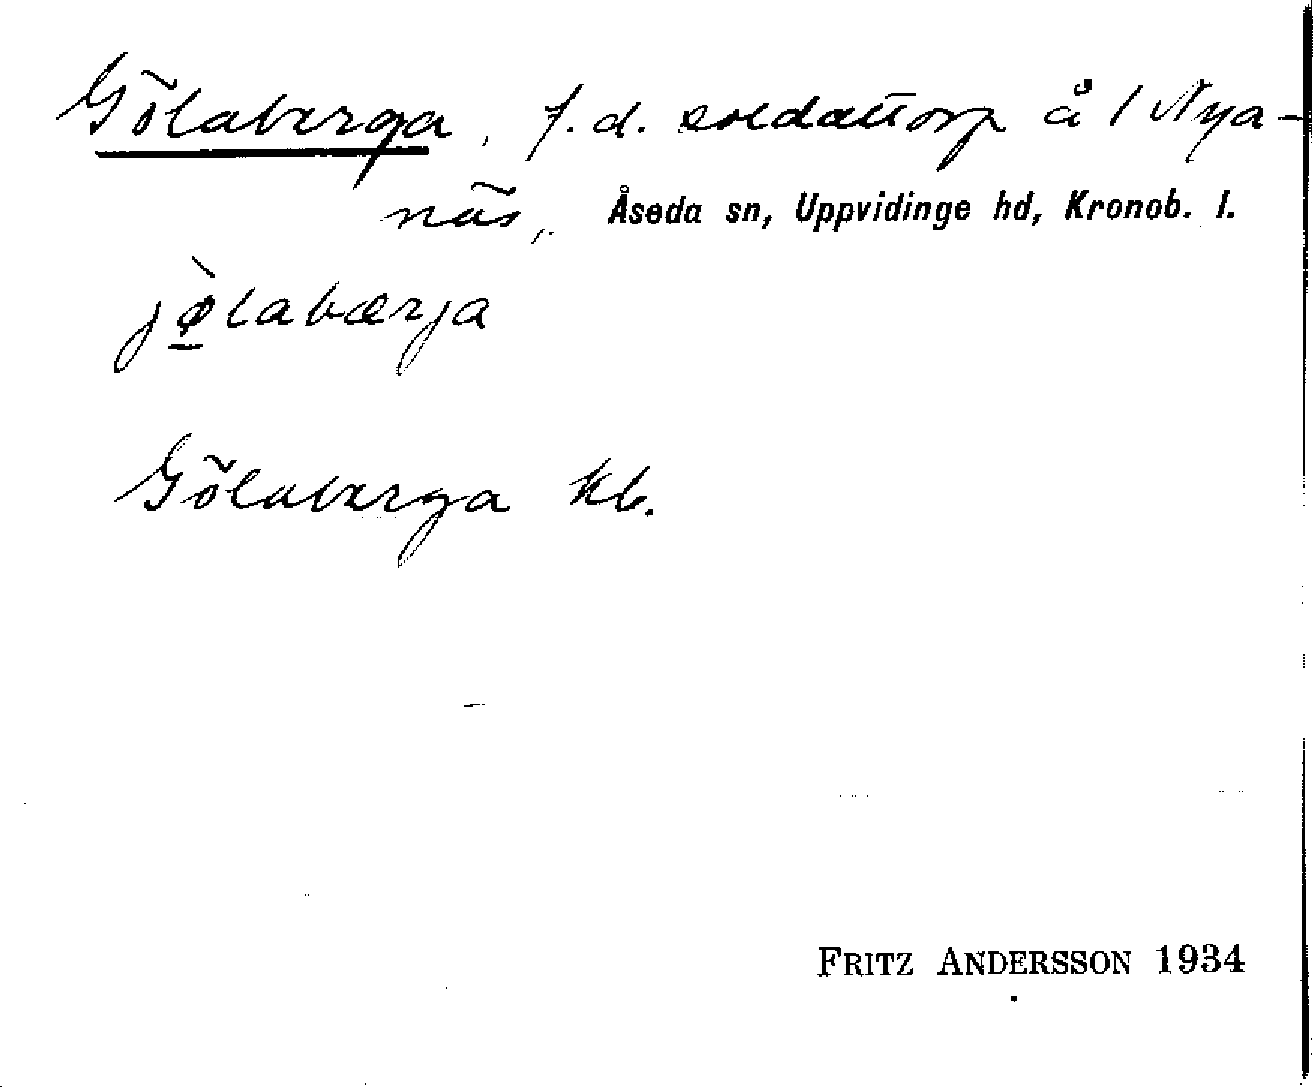 Gölaberga, f.d. soldattorp å 1 Nya-
näs, Åseda sn, Uppvidinge hd, Kronob. l.
jø̀labærja
Gölaberga kb.
FRITZ ANDERSSON 1934